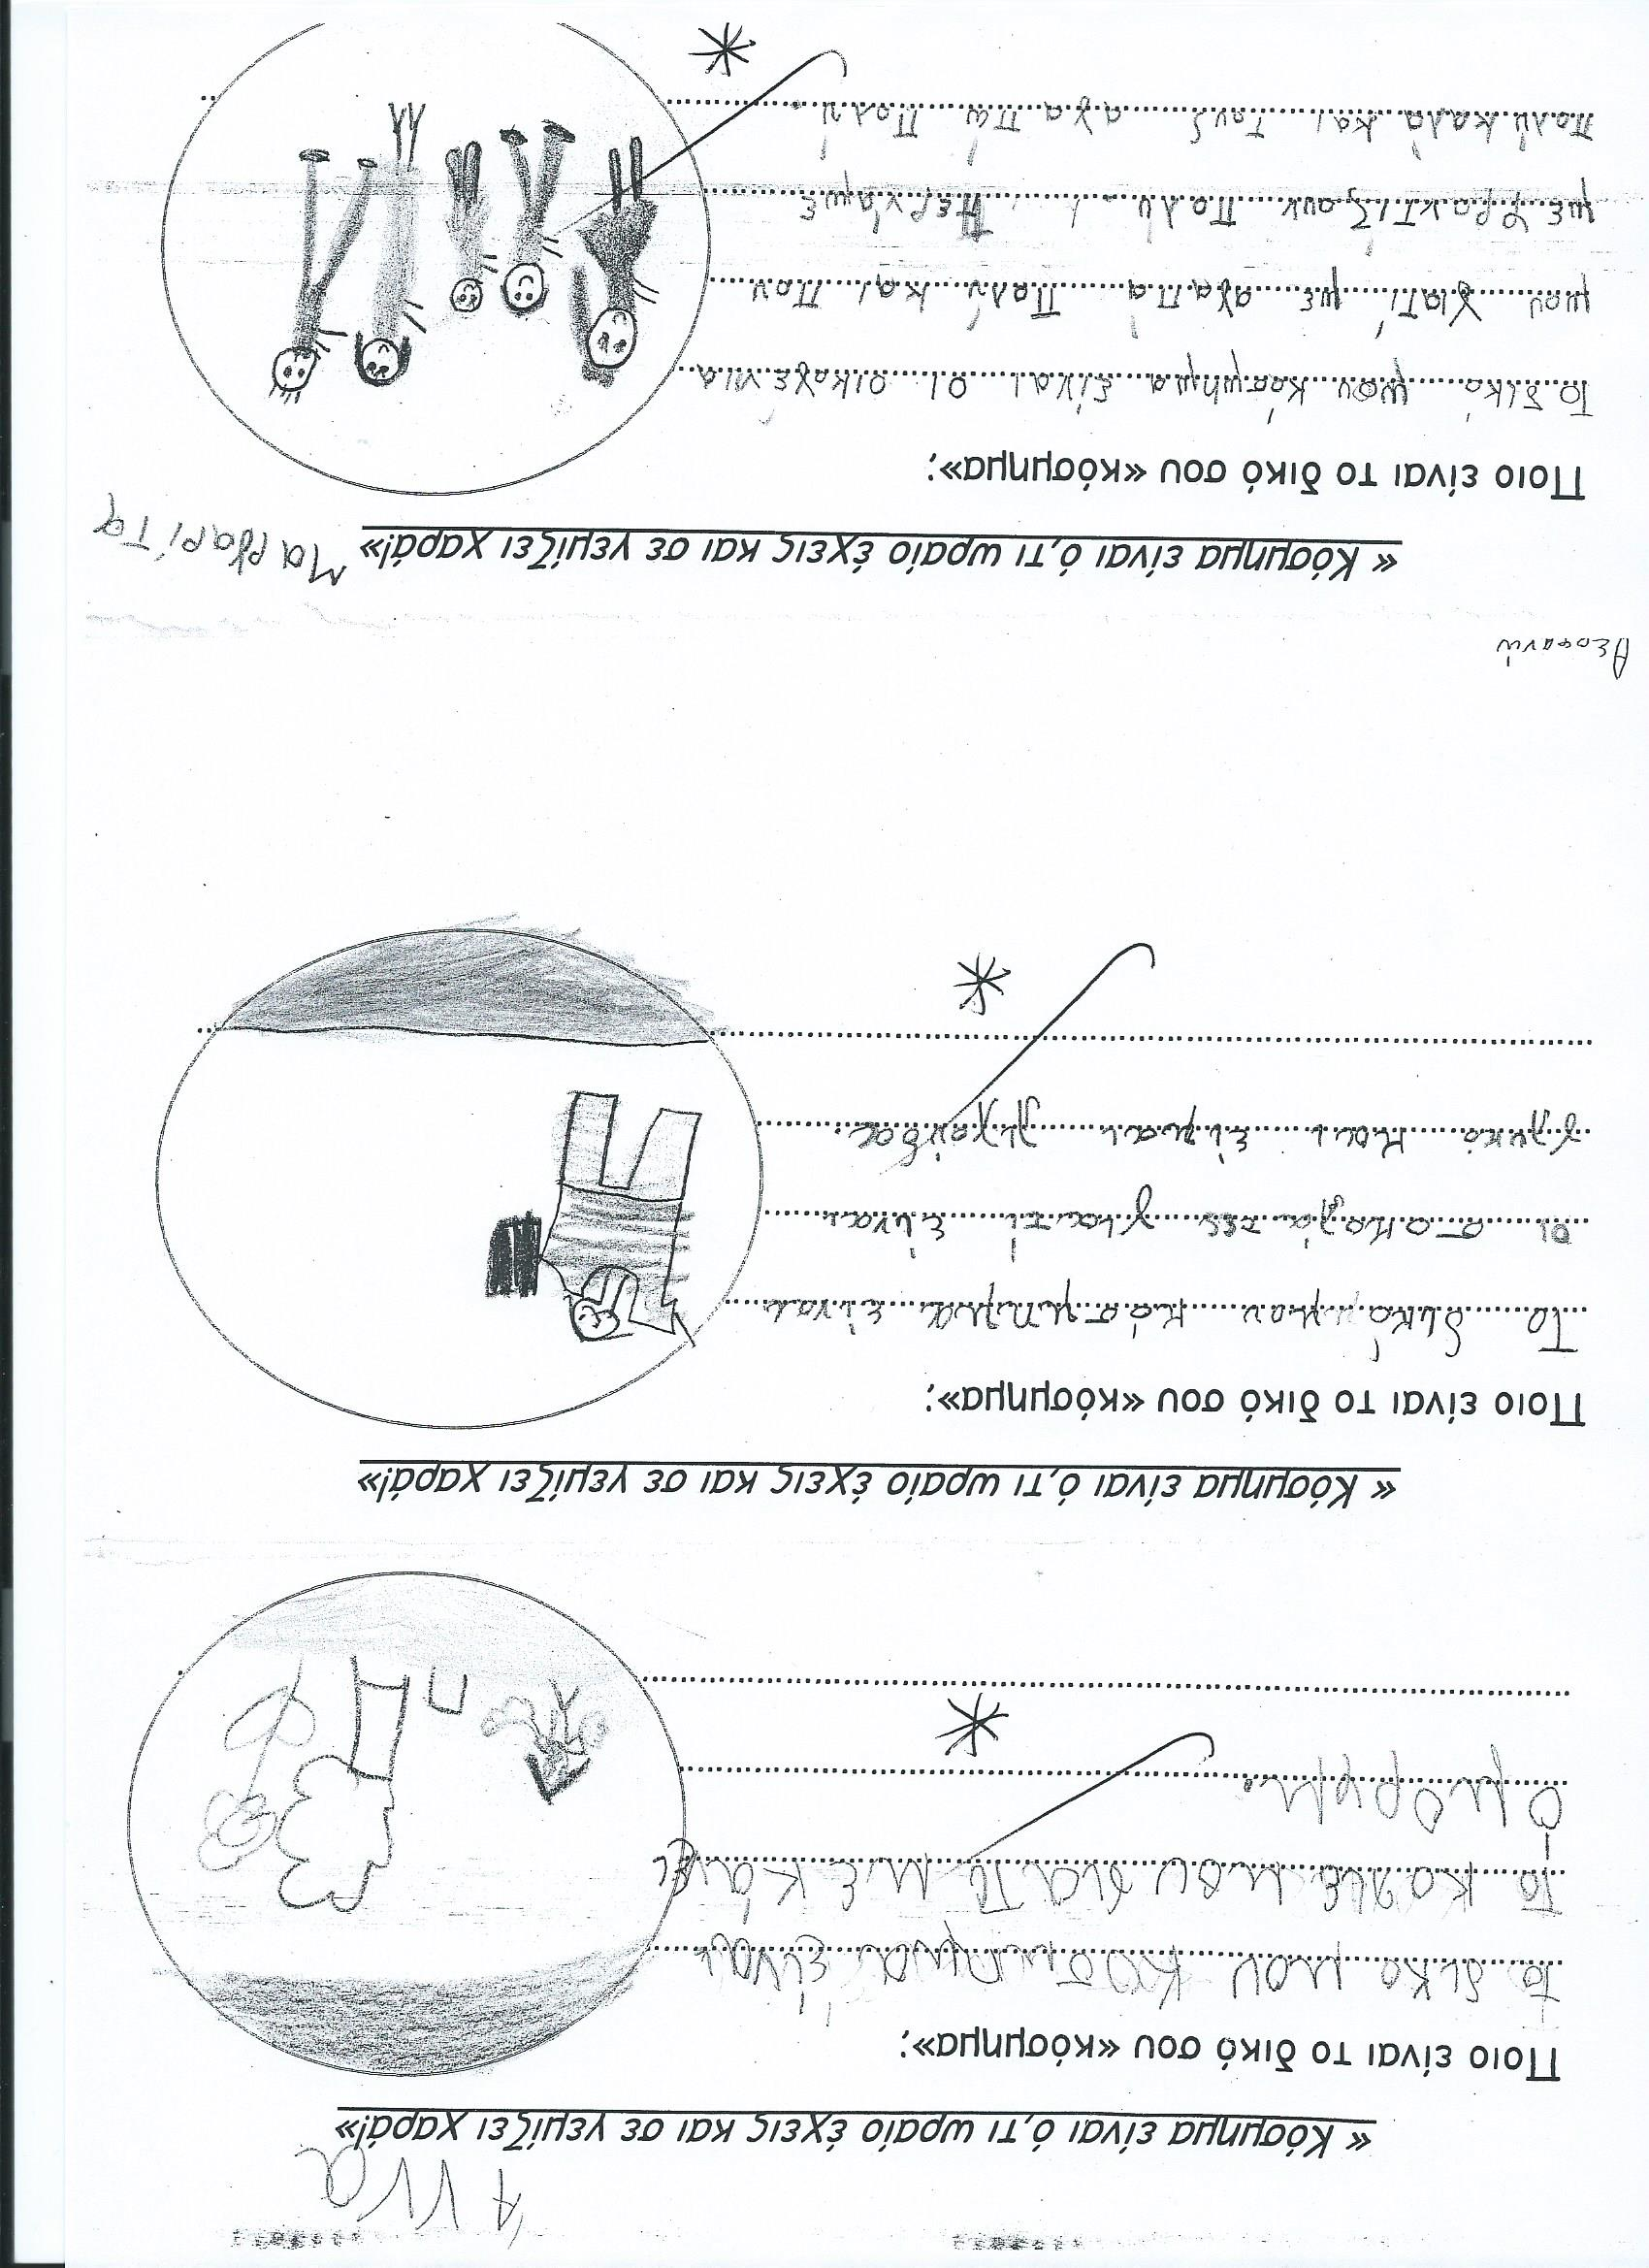 Άννα
« Κόσμημα είναι ό,τι ωραίο έχεις και σε γεμίζει χαρά!»
Ποιο είναι το δικό σου «κόσμημα»;
Το δικο μου κοσμημα είναι
το κολιέ μου γιατί με κάνει
όμορφη.
« Κόσμημα είναι ό,τι ωραίο έχεις και σε γεμίζει χαρά!»
Ποιο είναι το δικό σου «κόσμημα»;
Το δικό μου κόσμημα είναι
οι σοκολάτες γιατί είναι
γλυκό και είμαι λιχούδα.
Θεοφανώ
« Κόσμημα είναι ό,τι ωραίο έχεις και σε γεμίζει χαρά!» Μαργαρίτα
Ποιο είναι το δικό σου «κόσμημα»;
Το δικό μου κόσμημα είναι οι οικογένια
μου γιατί με αγαπά πολύ και που
με φροντίζουν πολύ. Περνάμε
πολύ καλά και τους αγαπώ πολύ.